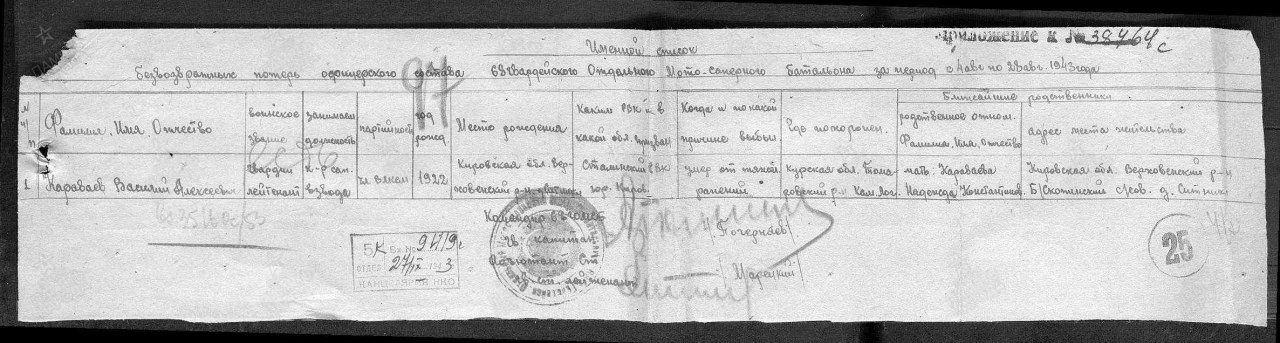 Приложение к № 38464с
Именной список
безвозвратных потерь офицерского состава 6 Гвардейского Отдельного Мото-саперного Батальона за период с 4 авг по 28 авг. 1943 года
97
№ п/п
Фамилия, Имя, Отчество
воинское звание
занимаем должность
партийность
год рожд.
Место рождения
Каким РВК и в какой обл. призван
Когда и по какой причине выбыл
Где похоронен.
Ближайшие родственники
родственное отнош. Фамилия, Имя, Отчество
адрес места жительства
1
Караваев Василий Алексеевич
гвардии лейтенант
к-р сап. взвода
чл. ВЛКСМ
1922
Кировская обл. Вер-
ховенский р-н
Сталинский РВК
гор. Киров.
умер от тяжел
ранений
Курская обл. Тома-
ровский р-н
мать. Караваева
Надежда Константинов.
Кировская обл. Верховенский р-н
Б/Скопинский с/сов. д. Ситники
Командир 6 ГвОМСБ
Гв. капитан
/Почерняев/
Адъютант Ст.
Гв. ст. лейтенант
/Марецкий/
БК Вх. № 9419с
ОТДЕЛ 27/IX 1943
25